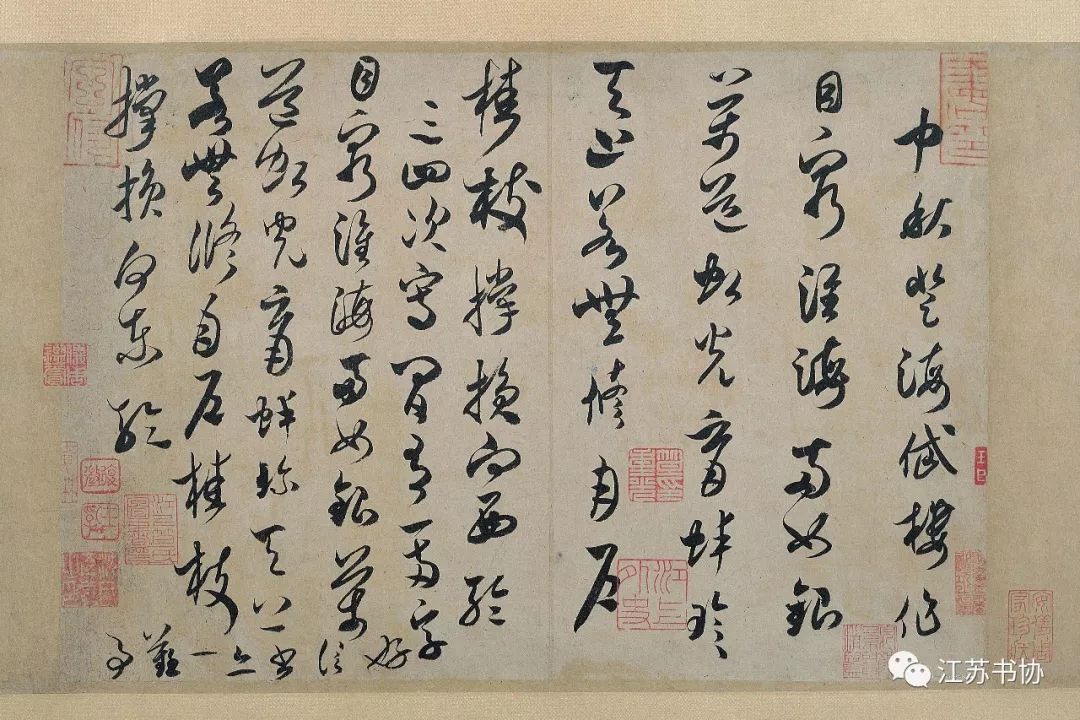 中秋登海岱樓作
目窮淮海兩如銀
萬道虹光育蚌珍
天上若無修月戶
桂枝撐損向西輪
三四次寫間有一兩字
目窮淮海兩如銀萬
道虹光育蚌珍天上
若無修月戶桂枝
撐損向東輪
好信書亦一難事
江上外史
江苏书协